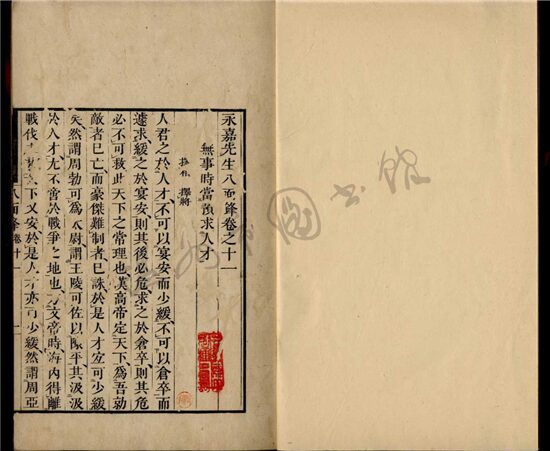 永嘉先生八面鋒卷之十一
無事時當預求人才
擇將
人君之於人才不可以宴安而少緩不可以倉卒而
遽求緩之於宴安則其後必危求之於倉卒則其危
必不可救此天下之常理也漢高帝定天下為吾勍
敵者已亡而豪傑難制者已誅於是人才宜可少緩
矣然謂周勃可為太尉謂王陵可佐以陳平其汲汲
於人才尤不啻於戰爭之地也文帝時海內得離
戰伐天下又安於是人才亦可少緩然謂周亞
八面鋒卷十一